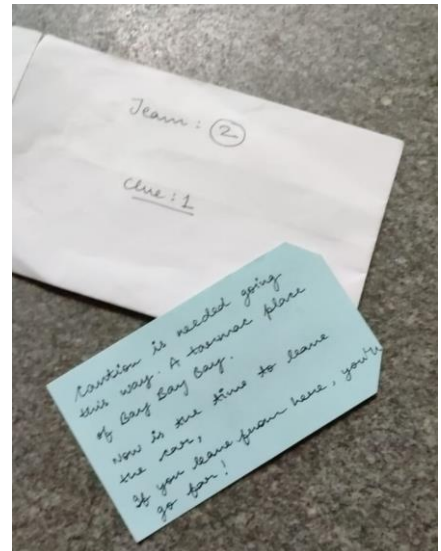 Team : 2
Clue : 1
Caution is needed going
this way. A tarmac place
of Bay Bay Bay.
Now is the time to leave
the car,
If you leave from here, you'll
go far!